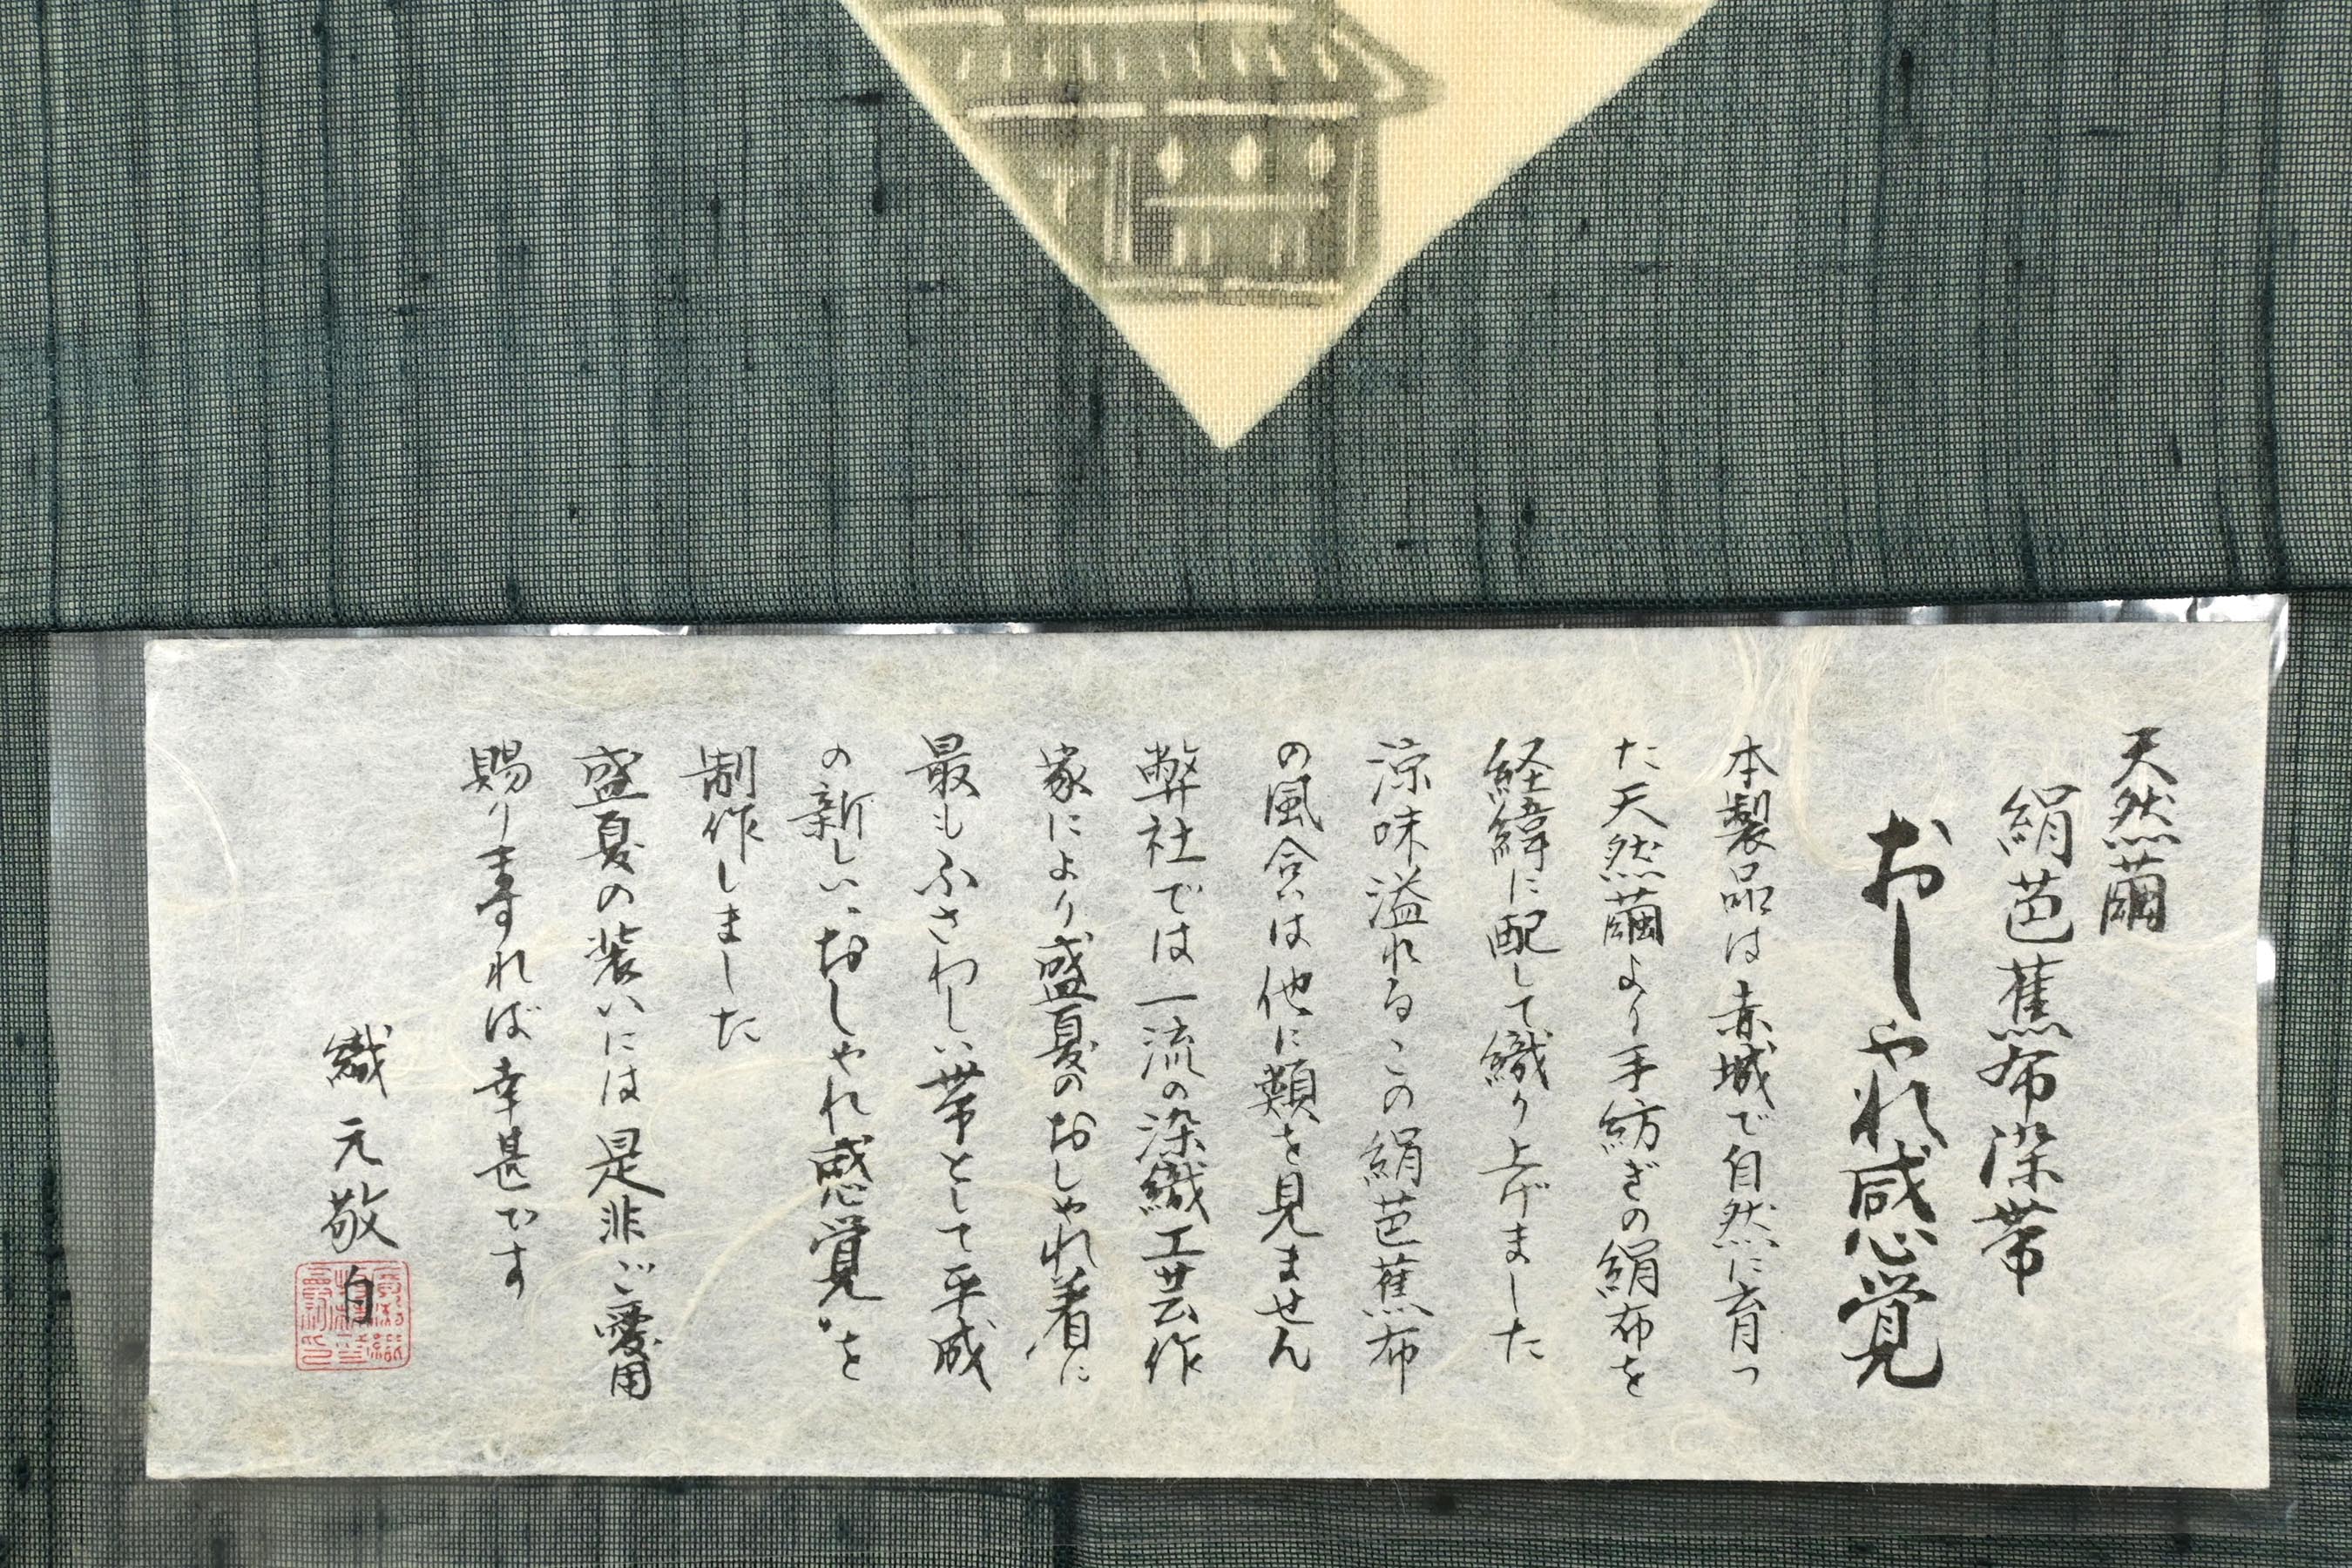 天然繭
絹芭蕉布染帯
おしゃれ感覚
本製品は赤城で自然に育っ
た天然繭より手紡ぎの絹布を
経緯に配して織り上げました
涼味溢れるこの絹芭蕉布
の風合いは他に類を見ません
弊社では一流の染織工芸作
家により盛夏のおしゃれ着に
最もふさわしい帯として平成
の新しい、おしゃれ感覚〟を
制作しました
盛夏の装いには是非ご愛用
賜りますれば幸甚です
織元敬白